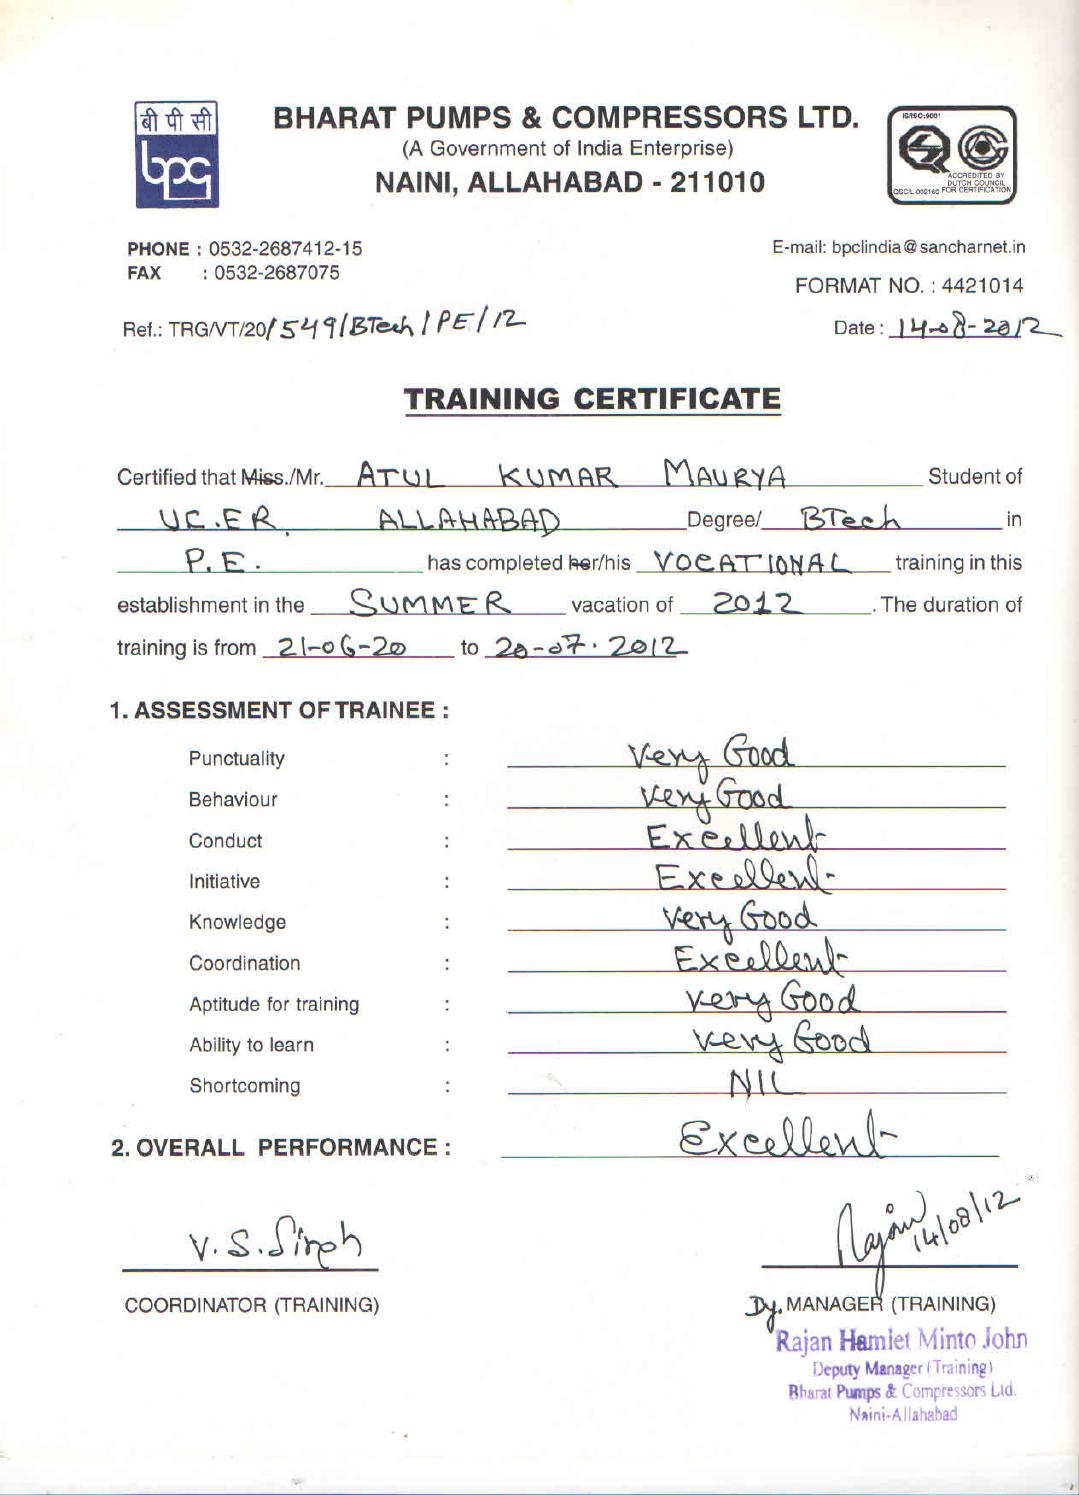 बी पी सी
bpc
BHARAT PUMPS & COMPRESSORS LTD.
(A Government of India Enterprise)
NAINI, ALLAHABAD - 211010
IS/ISO:9001
ACCREDITED BY
DUTCH COUNCIL
FOR CERTIFICATION
PHONE : 0532-2687412-15
FAX : 0532-2687075
E-mail: bpclindia@sancharnet.in
FORMAT NO. : 4421014
Ref.: TRG/VT/20/549/BTech/PE/12
Date : 14-08-2012
TRAINING CERTIFICATE
Certified that Miss./Mr. ATUL KUMAR MAURYA Student of
UC.ER. ALLAHABAD Degree/ BTech in
P.E. has completed her/his VOCATIONAL training in this
establishment in the SUMMER vacation of 2012. The duration of
training is from 21-06-20 to 20-07.2012
1. ASSESSMENT OF TRAINEE :
Punctuality : Very Good
Behaviour : Very Good
Conduct : Excellent
Initiative : Excellent
Knowledge : Very Good
Coordination : Excellent
Aptitude for training : Very Good
Ability to learn : Very Good
Shortcoming : NIL
2. OVERALL PERFORMANCE : Excellent
V.S.Singh
Rajan 14/08/12
COORDINATOR (TRAINING)
Dy. MANAGER (TRAINING)
Rajan Hamlet Minto John
Deputy Manager (Training)
Bharat Pumps & Compressors Ltd.
Naini-Allahabad